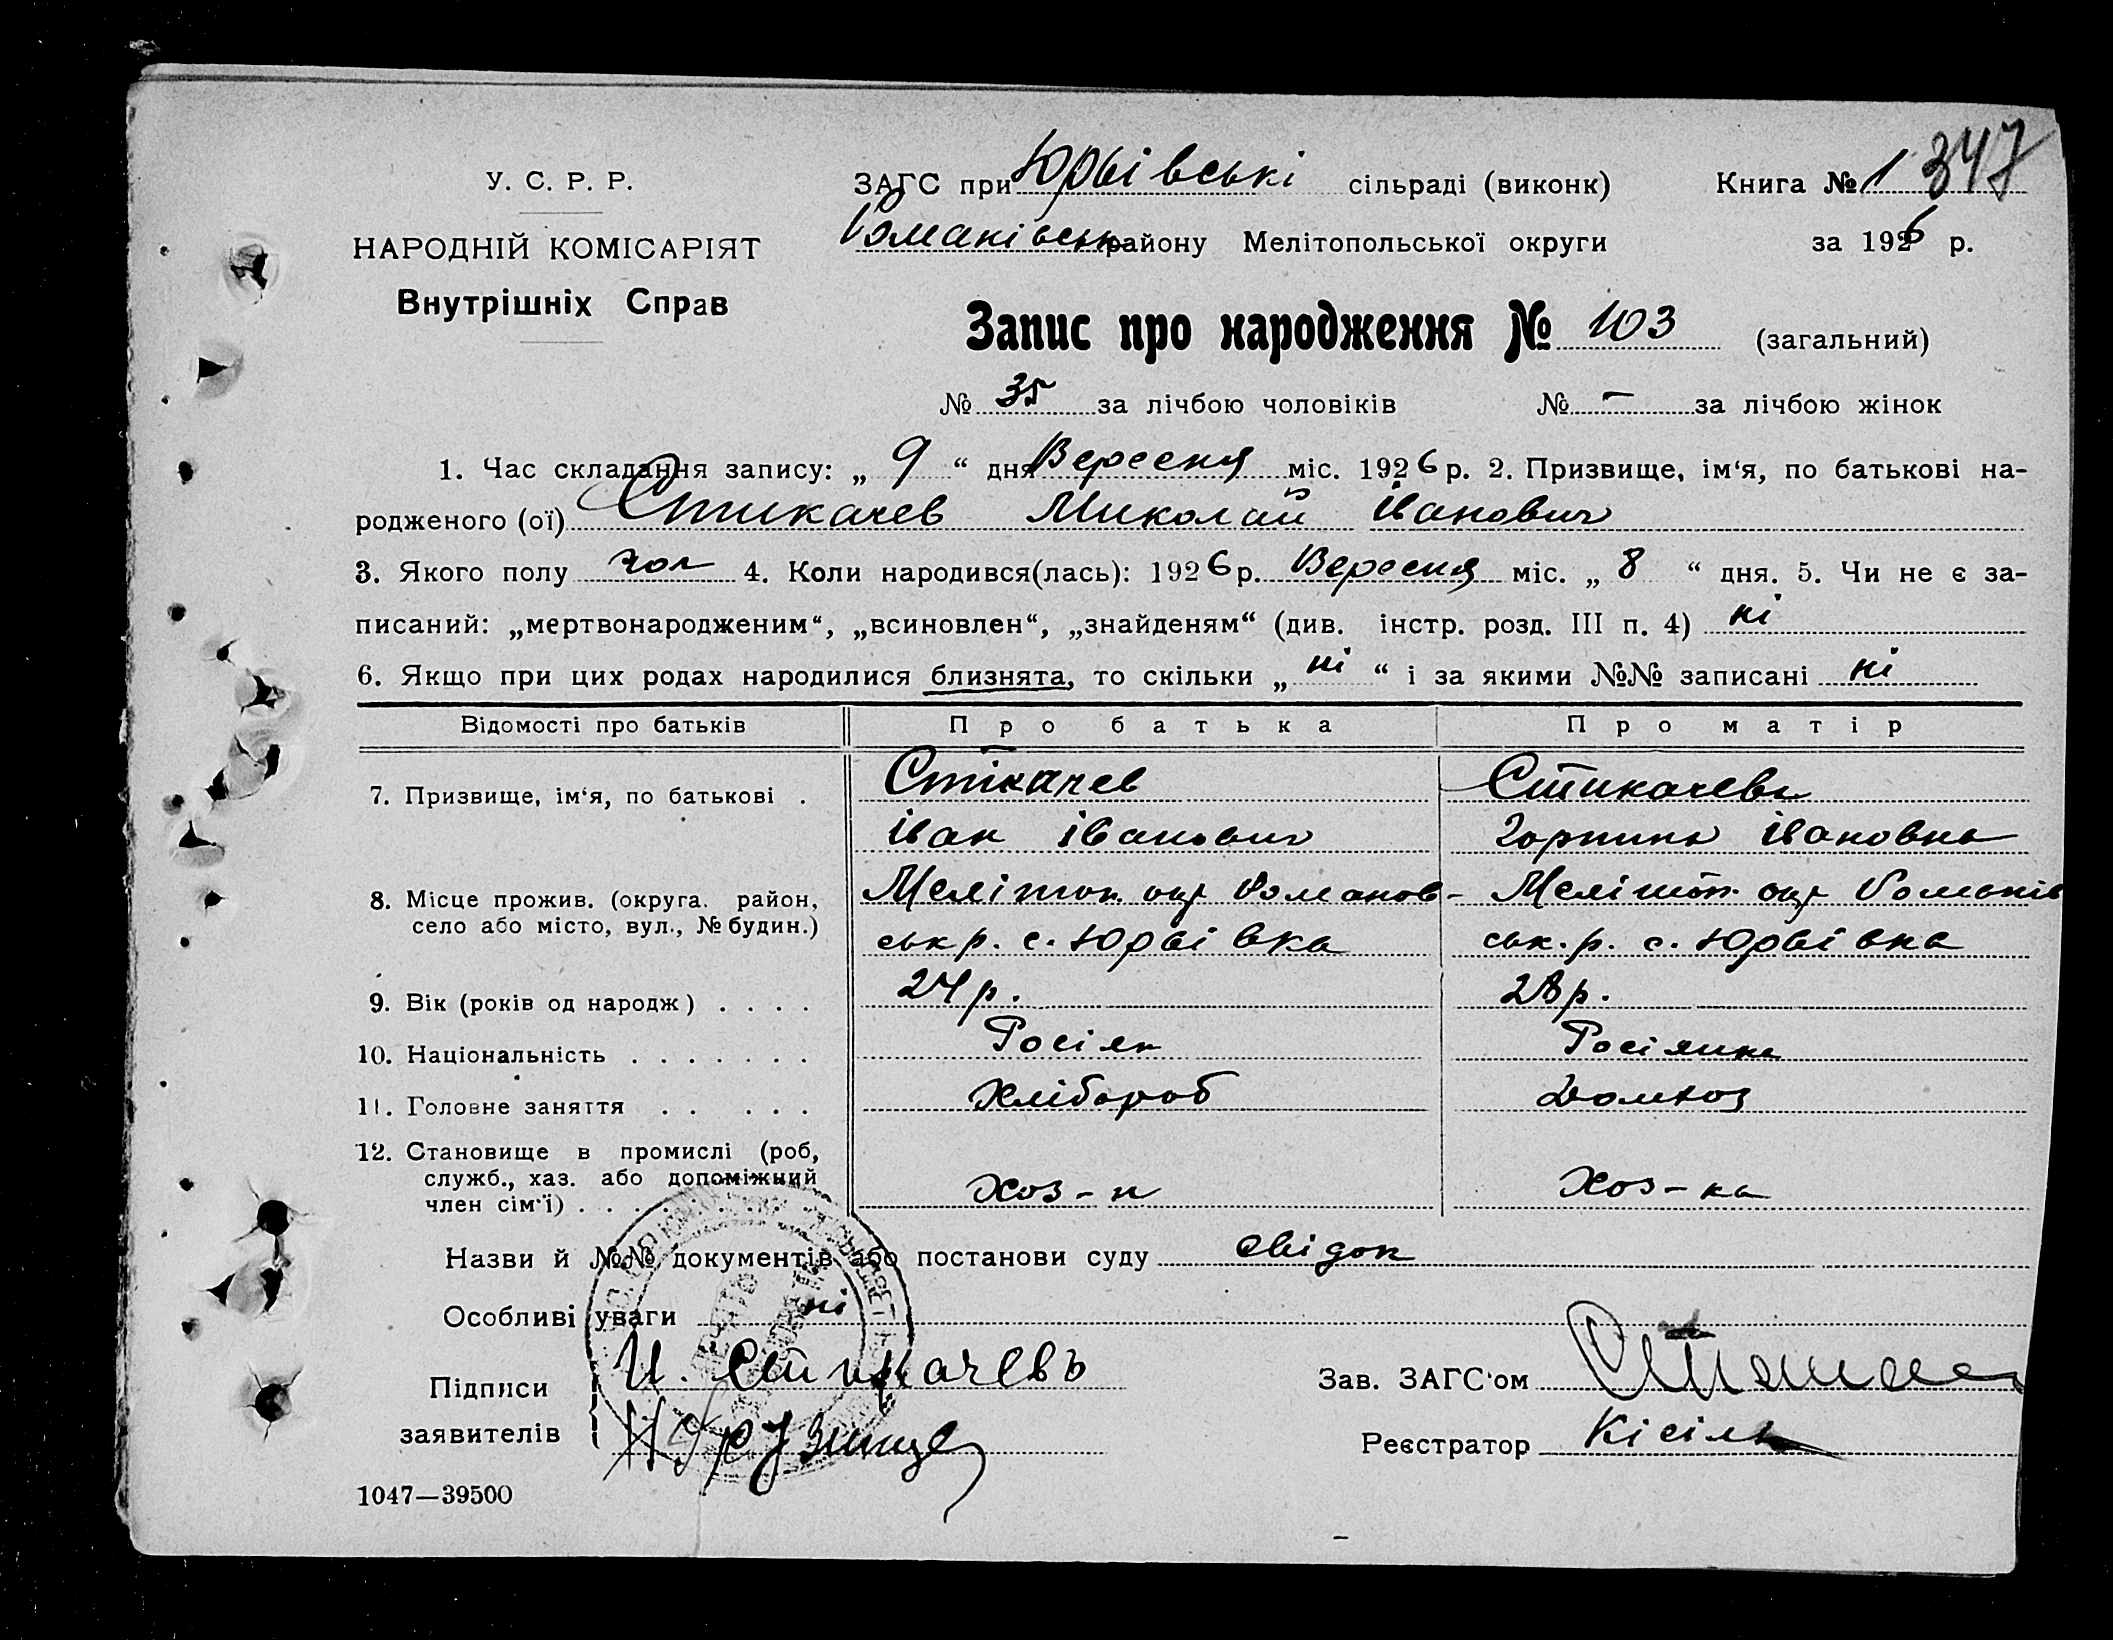 347
У. С. Р. Р.
ЗАГС при Юрьівські сільраді (виконк) Книга № 1
НАРОДНІЙ КОМІСАРІЯТ
Романівськ району Мелітопольської округи за 1926 р.
Внутрішніх Справ
Запис про народження № 103 (загальний)
№ 35 за лічбою чоловіків № — за лічбою жінок
1. Час складання запису: „ 9 “ дня Вересня міс. 1926 р. 2. Призвище, ім‘я, по батькові на-
родженого (ої) Стикачев Миколай Іванович
3. Якого полу чол 4. Коли народився(лась): 1926 р. Вересня міс. „ 8 “ дня. 5. Чи не є за-
писаний: „мертвонародженим“, „всиновлен“, „знайденям“ (див. інстр. розд. III п. 4) ні
6. Якщо при цих родах народилися близнята, то скільки „ ні “ і за якими №№ записані ні
Відомості про батьків Про батька Про матір
7. Призвище, ім‘я, по батькові . Стікачев Стикачева
Іван Іванович Горпина Івановна
8. Місце прожив. (округа. район, Мелітоп. окр Романов- Мелітоп. окр Романів
село або місто, вул., № будин.) ськ р. с. Юрьівка ськ. р. с. Юрьівка
9. Вік (років од народж) . . . . 24 р. 28 р.
10. Національність . . . . . . . Росіян Росіянка
11. Головне заняття . . . . . Хлібороб Домхоз
12. Становище в промислі (роб,
служб., хаз. або допоміжний Хоз-н Хоз-ка
член сім‘ї) . . .
Назви й №№ документів або постанови суду свідок
Особливі уваги ні
Підписи И. Стикачевъ Зав. ЗАГС‘ом
заявителів Реєстратор Кісіль
1047—39500